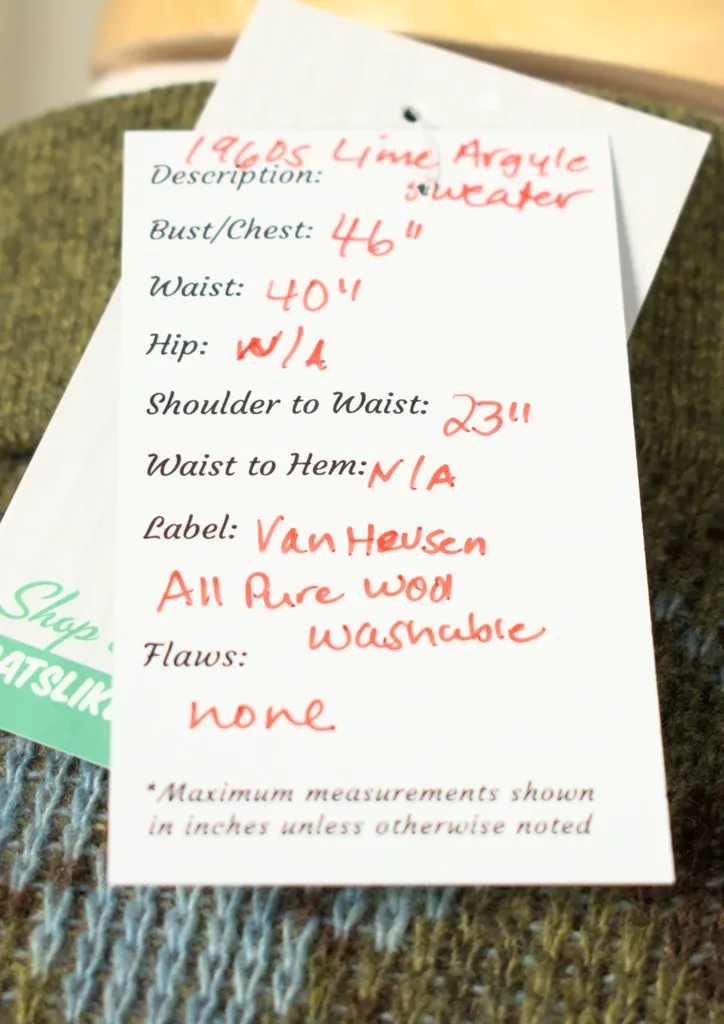 1960s Lime Argyle
Description: sweater
Bust/Chest: 46"
Waist: 40"
Hip: N/A
Shoulder to Waist: 23"
Waist to Hem: N/A
Label: Van Heusen
All Pure Wool
washable
Flaws:
none
*Maximum measurements shown
in inches unless otherwise noted
Shop